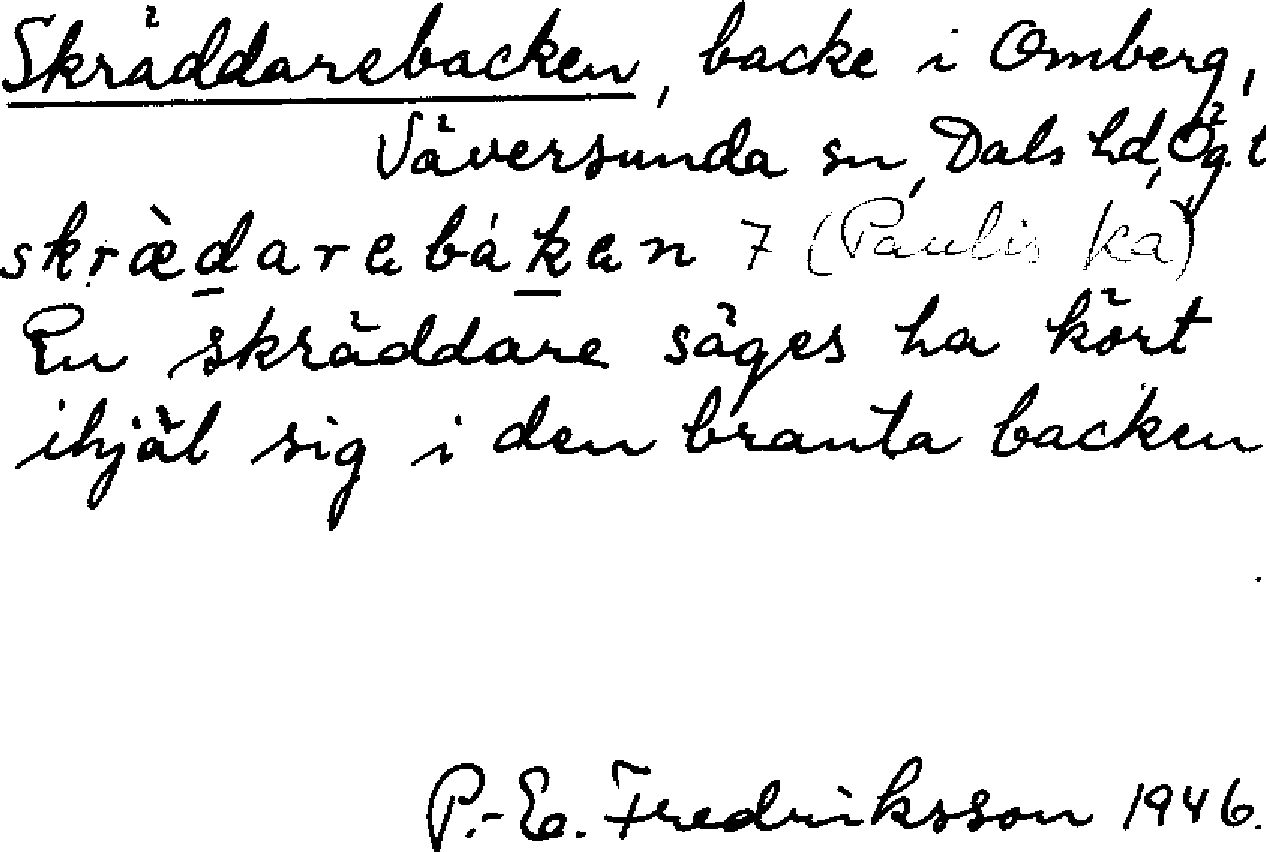 Skräddarebacken, backe i Omberg,
Väversunda sn, Dals hd, Ögt
skræ̀darebákan 7 (Paulis ka)
En skräddare säges ha kört
ihjäl sig i den branta backen
P.-E. Fredriksson 1946.